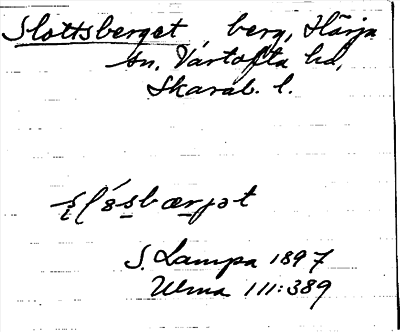 Slottsberget, berg, Härja
sn, Vartofta hd,
Skarab. l.
S. Lampa 1897
Ulma 111:389